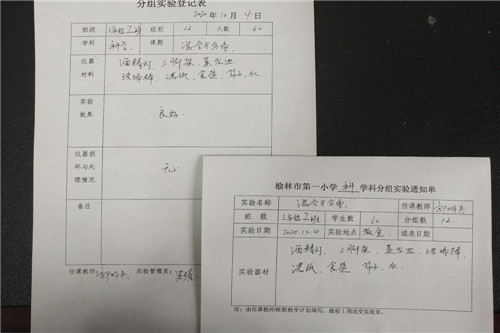 分组实验登记表
2020年12月4日
班级 三年级2班 组别 12 人数 60
学科 科学 课题 混合与分离
仪器材料 酒精灯、三脚架、蒸发皿
玻璃棒、滤纸、食盐、筛子、水
实验效果 良好
仪器损坏与处理情况 无
备注
任课教师: 实验管理员:
榆林市第一小学 科 学科分组实验通知单
实验名称 混合与分离 任课教师
班级 三年级2班 学生数 60 分组数 12
实验日期 2020.12.4 实验地点 教室 填表日期
实验器材 酒精灯、三脚架、蒸发皿、玻璃棒
滤纸、食盐、筛子、水
注:由任课教师根据教学计划填写,提前1周送交实验室。